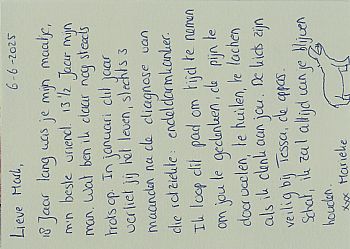 6-6-2025
Lieve Mark,
18 Jaar lang was je mijn maatje,
mijn beste vriend. 13 ½ Jaar mijn
man. Wat ben ik daar nog steeds
trots op. In januari dit jaar
verliet jij het leven, slechts 3
maanden na de diagnose van
die rotziekte: endeldarmkanker.
Ik loop dit pad om tijd te nemen
om jou te gedenken, de pijn te
doorvoelen, te huilen, te lachen
als ik denk aan jou. De kids zijn
veilig bij Tessa, de oppas.
Schat, ik zal altijd van je blijven
houden.
xxx Marieke